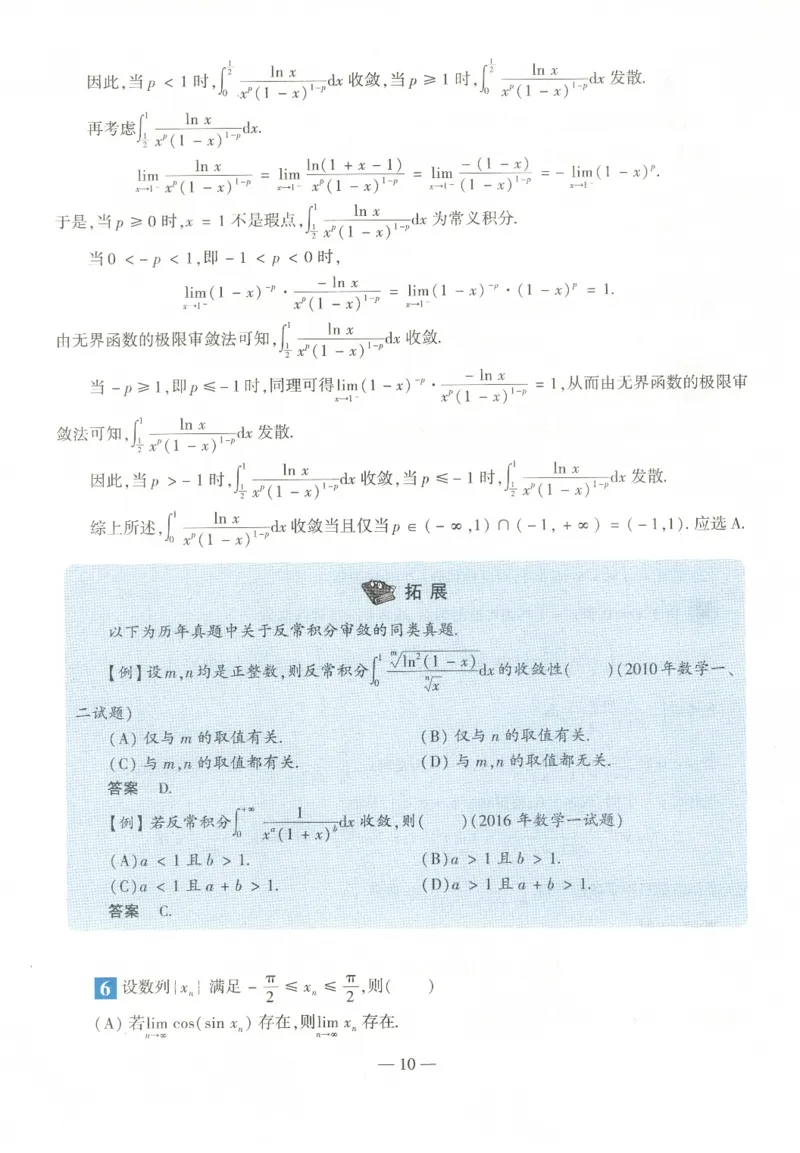 因此,当 p < 1 时,∫_0^{1/2} ln x / (x^p(1 − x)^{1−p}) dx 收敛,当 p ≥ 1 时,∫_0^{1/2} ln x / (x^p(1 − x)^{1−p}) dx 发散.
再考虑∫_{1/2}^1 ln x / (x^p(1 − x)^{1−p}) dx.
lim_{x→1⁻} ln x / (x^p(1 − x)^{1−p}) = lim_{x→1⁻} ln(1 + x − 1) / (x^p(1 − x)^{1−p}) = lim_{x→1⁻} −(1 − x) / (1 − x)^{1−p} = − lim_{x→1⁻} (1 − x)^p.
于是,当 p ≥ 0 时,x = 1 不是瑕点,∫_{1/2}^1 ln x / (x^p(1 − x)^{1−p}) dx 为常义积分.
当 0 < − p < 1,即 − 1 < p < 0 时,
lim_{x→1⁻} (1 − x)^{−p} · −ln x / (x^p(1 − x)^{1−p}) = lim_{x→1⁻} (1 − x)^{−p} · (1 − x)^p = 1.
由无界函数的极限审敛法可知,∫_{1/2}^1 ln x / (x^p(1 − x)^{1−p}) dx 收敛.
当 − p ≥ 1,即 p ≤ − 1 时,同理可得 lim_{x→1⁻} (1 − x)^{−p} · −ln x / (x^p(1 − x)^{1−p}) = 1,从而由无界函数的极限审
敛法可知,∫_{1/2}^1 ln x / (x^p(1 − x)^{1−p}) dx 发散.
因此,当 p > − 1 时,∫_{1/2}^1 ln x / (x^p(1 − x)^{1−p}) dx 收敛,当 p ≤ − 1 时,∫_{1/2}^1 ln x / (x^p(1 − x)^{1−p}) dx 发散.
综上所述,∫_0^1 ln x / (x^p(1 − x)^{1−p}) dx 收敛当且仅当 p ∈ (− ∞ ,1) ∩ (− 1, + ∞ ) = (− 1,1). 应选 A.
拓展
以下为历年真题中关于反常积分审敛的同类真题.
【例】设 m,n 均是正整数,则反常积分∫_0^1 \sqrt[m]{ln²(1 − x)} / \sqrt[n]{x} dx 的收敛性( )(2010 年数学一、
二试题)
(A) 仅与 m 的取值有关. (B) 仅与 n 的取值有关.
(C) 与 m,n 的取值都有关. (D) 与 m,n 的取值都无关.
答案 D.
【例】若反常积分∫_0^{+∞} 1 / (x^a(1 + x)^b) dx 收敛,则( )(2016 年数学一试题)
(A)a < 1 且 b > 1. (B)a > 1 且 b > 1.
(C)a < 1 且 a + b > 1. (D)a > 1 且 a + b > 1.
答案 C.
6 设数列{x_n} 满足 − π/2 ≤ x_n ≤ π/2,则( )
(A) 若 lim_{n→∞} cos(sin x_n) 存在,则 lim_{n→∞} x_n 存在.
— 10 —